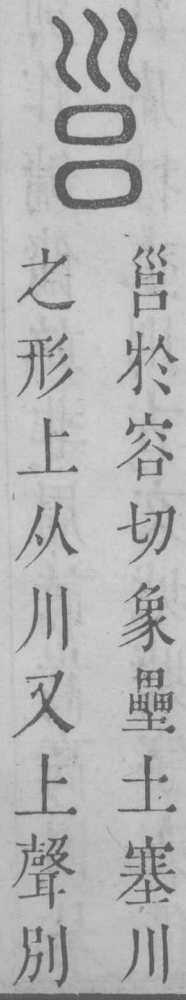 邕於容切象壘土塞川
之形上从川又上聲別